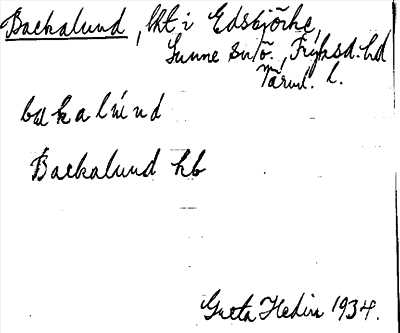 Backalund, lht i Edsbjörke,
Sunne snö. Fryksd. hd
Värml. l.
bakalund
Backalund hb
Greta Hedin 1934.